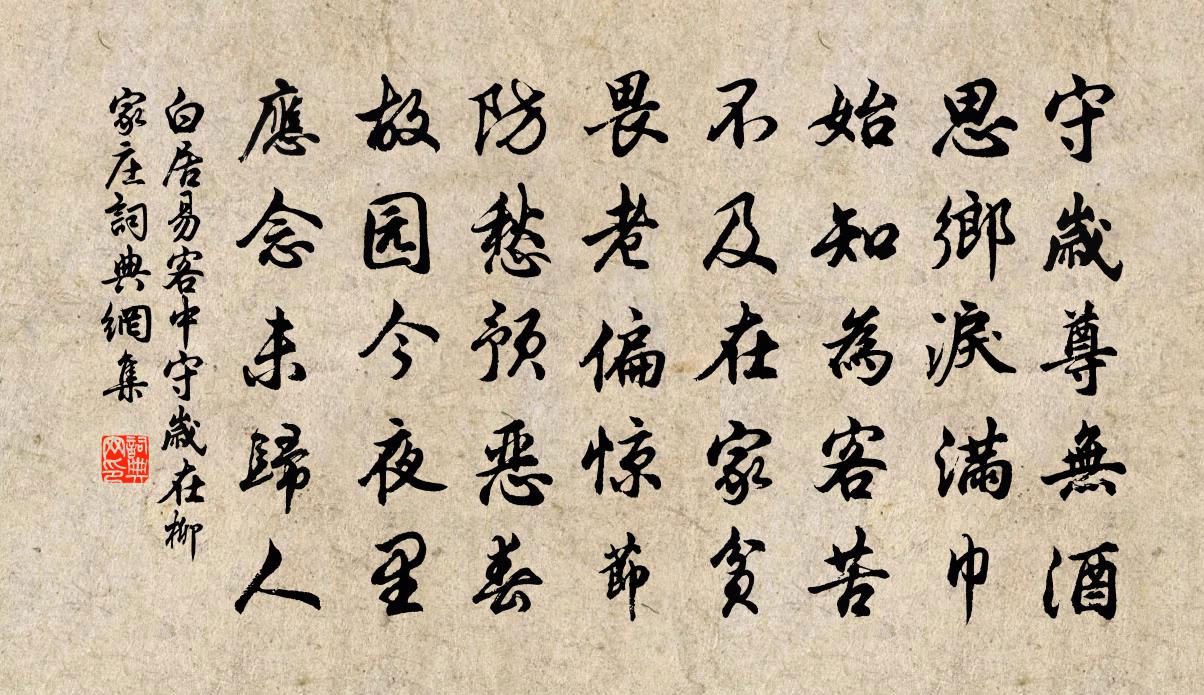 守歲尊無酒
思鄉淚滿巾
始知為客苦
不及在家貧
畏老偏惊節
防愁預惡春
故园今夜里
應念未歸人
白居易客中守歲在柳
家庄詞典網集
詞典网印